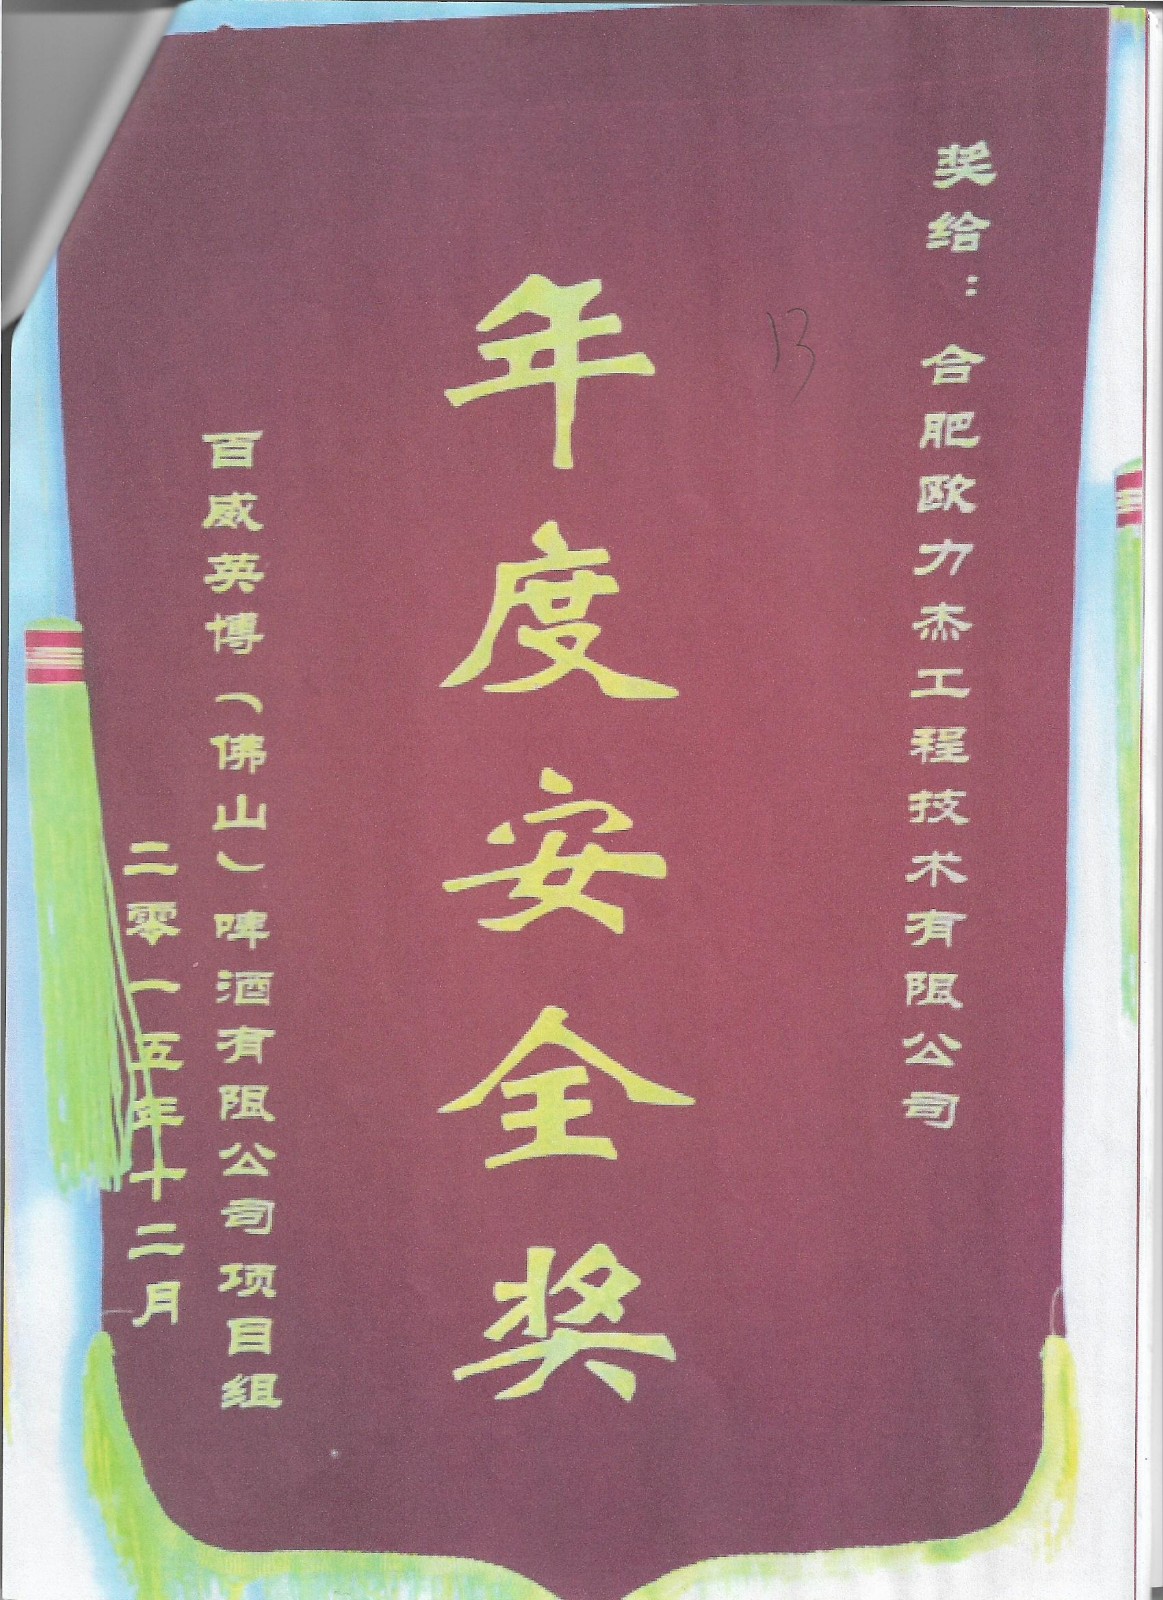 奖给：合肥欧力杰工程技术有限公司
13
年度安全奖
百威英博（佛山）啤酒有限公司项目组
二零一五年十二月